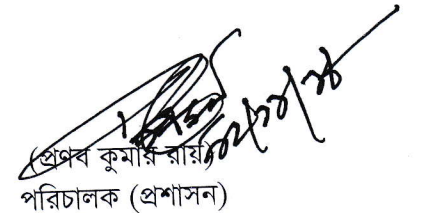 (প্রণব কুমার রায়)
পরিচালক (প্রশাসন)